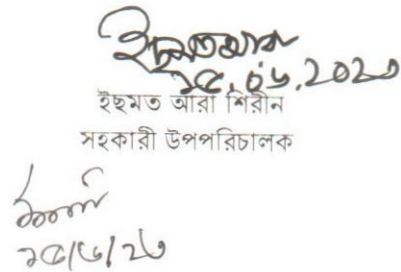 ইছমতআরা
১৫.০৬.২০২৩
ইছমত আরা শিরীন
সহকারী উপপরিচালক
১৫/৬/২৩